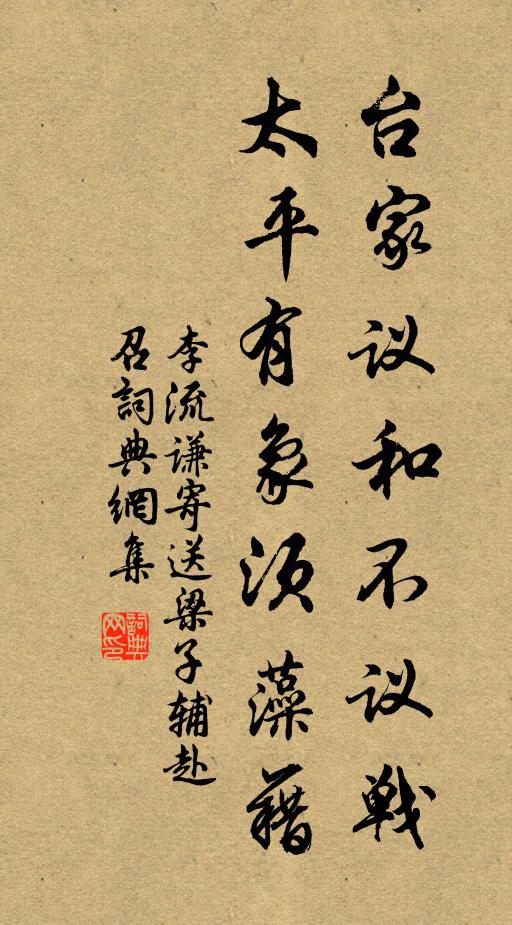 台家议和不议战
太平有象须藻藉
李流谦寄送梁子辅赴
召詞典網集
詞典網印